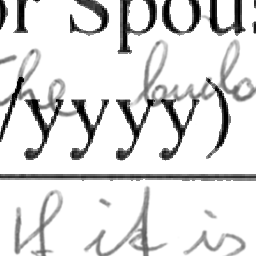 or Spous
the
/yyyy)
If it is